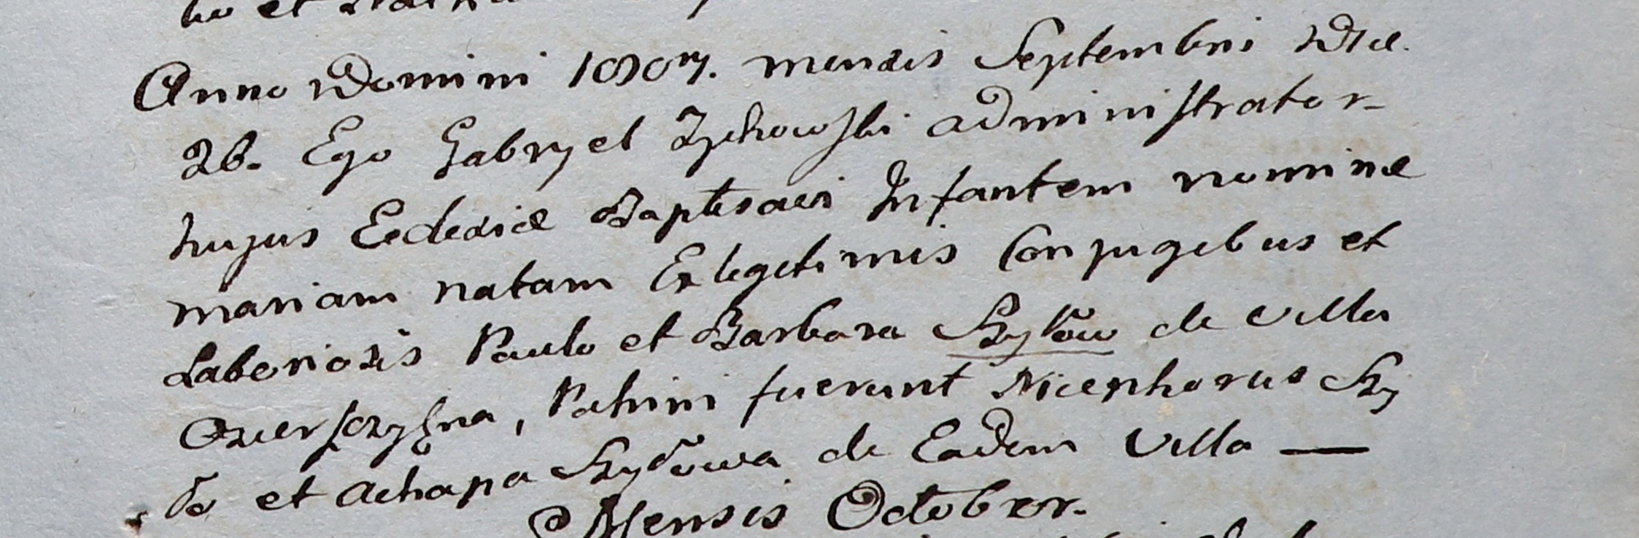 Anno Domini 1807. mensis Septembris Die.
26. Ego Gabryel Zychowski administrator
hujus Ecclesiæ Baptisavi Infantem nomine
mariam natam Ex legitimis Conjugibus et
Laboriosis Paulo et Barbara Szyłow de villa
Patrini fuerunt Nicephorus Szy
ło et Achapa Szyłowa de Eadem Villa —
Mensis October.